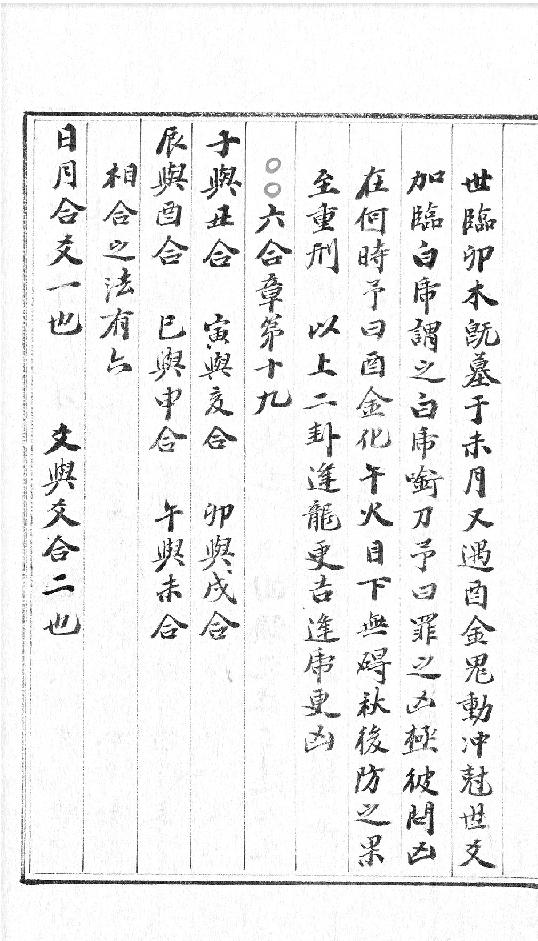 世臨卯木既墓于未月又遇酉金鬼動冲尅世爻
加臨白虎謂之白虎啣刀予曰罪之凶極彼問凶
在何時予曰酉金化午火目下無碍秋後防之果
至重刑　以上二卦逢龍更吉逢虎更凶
○○六合章第十九
子與丑合　寅與亥合　卯與戌合
辰與酉合　巳與申合　午與未合
相合之法有六
日月合爻一也　爻與爻合二也